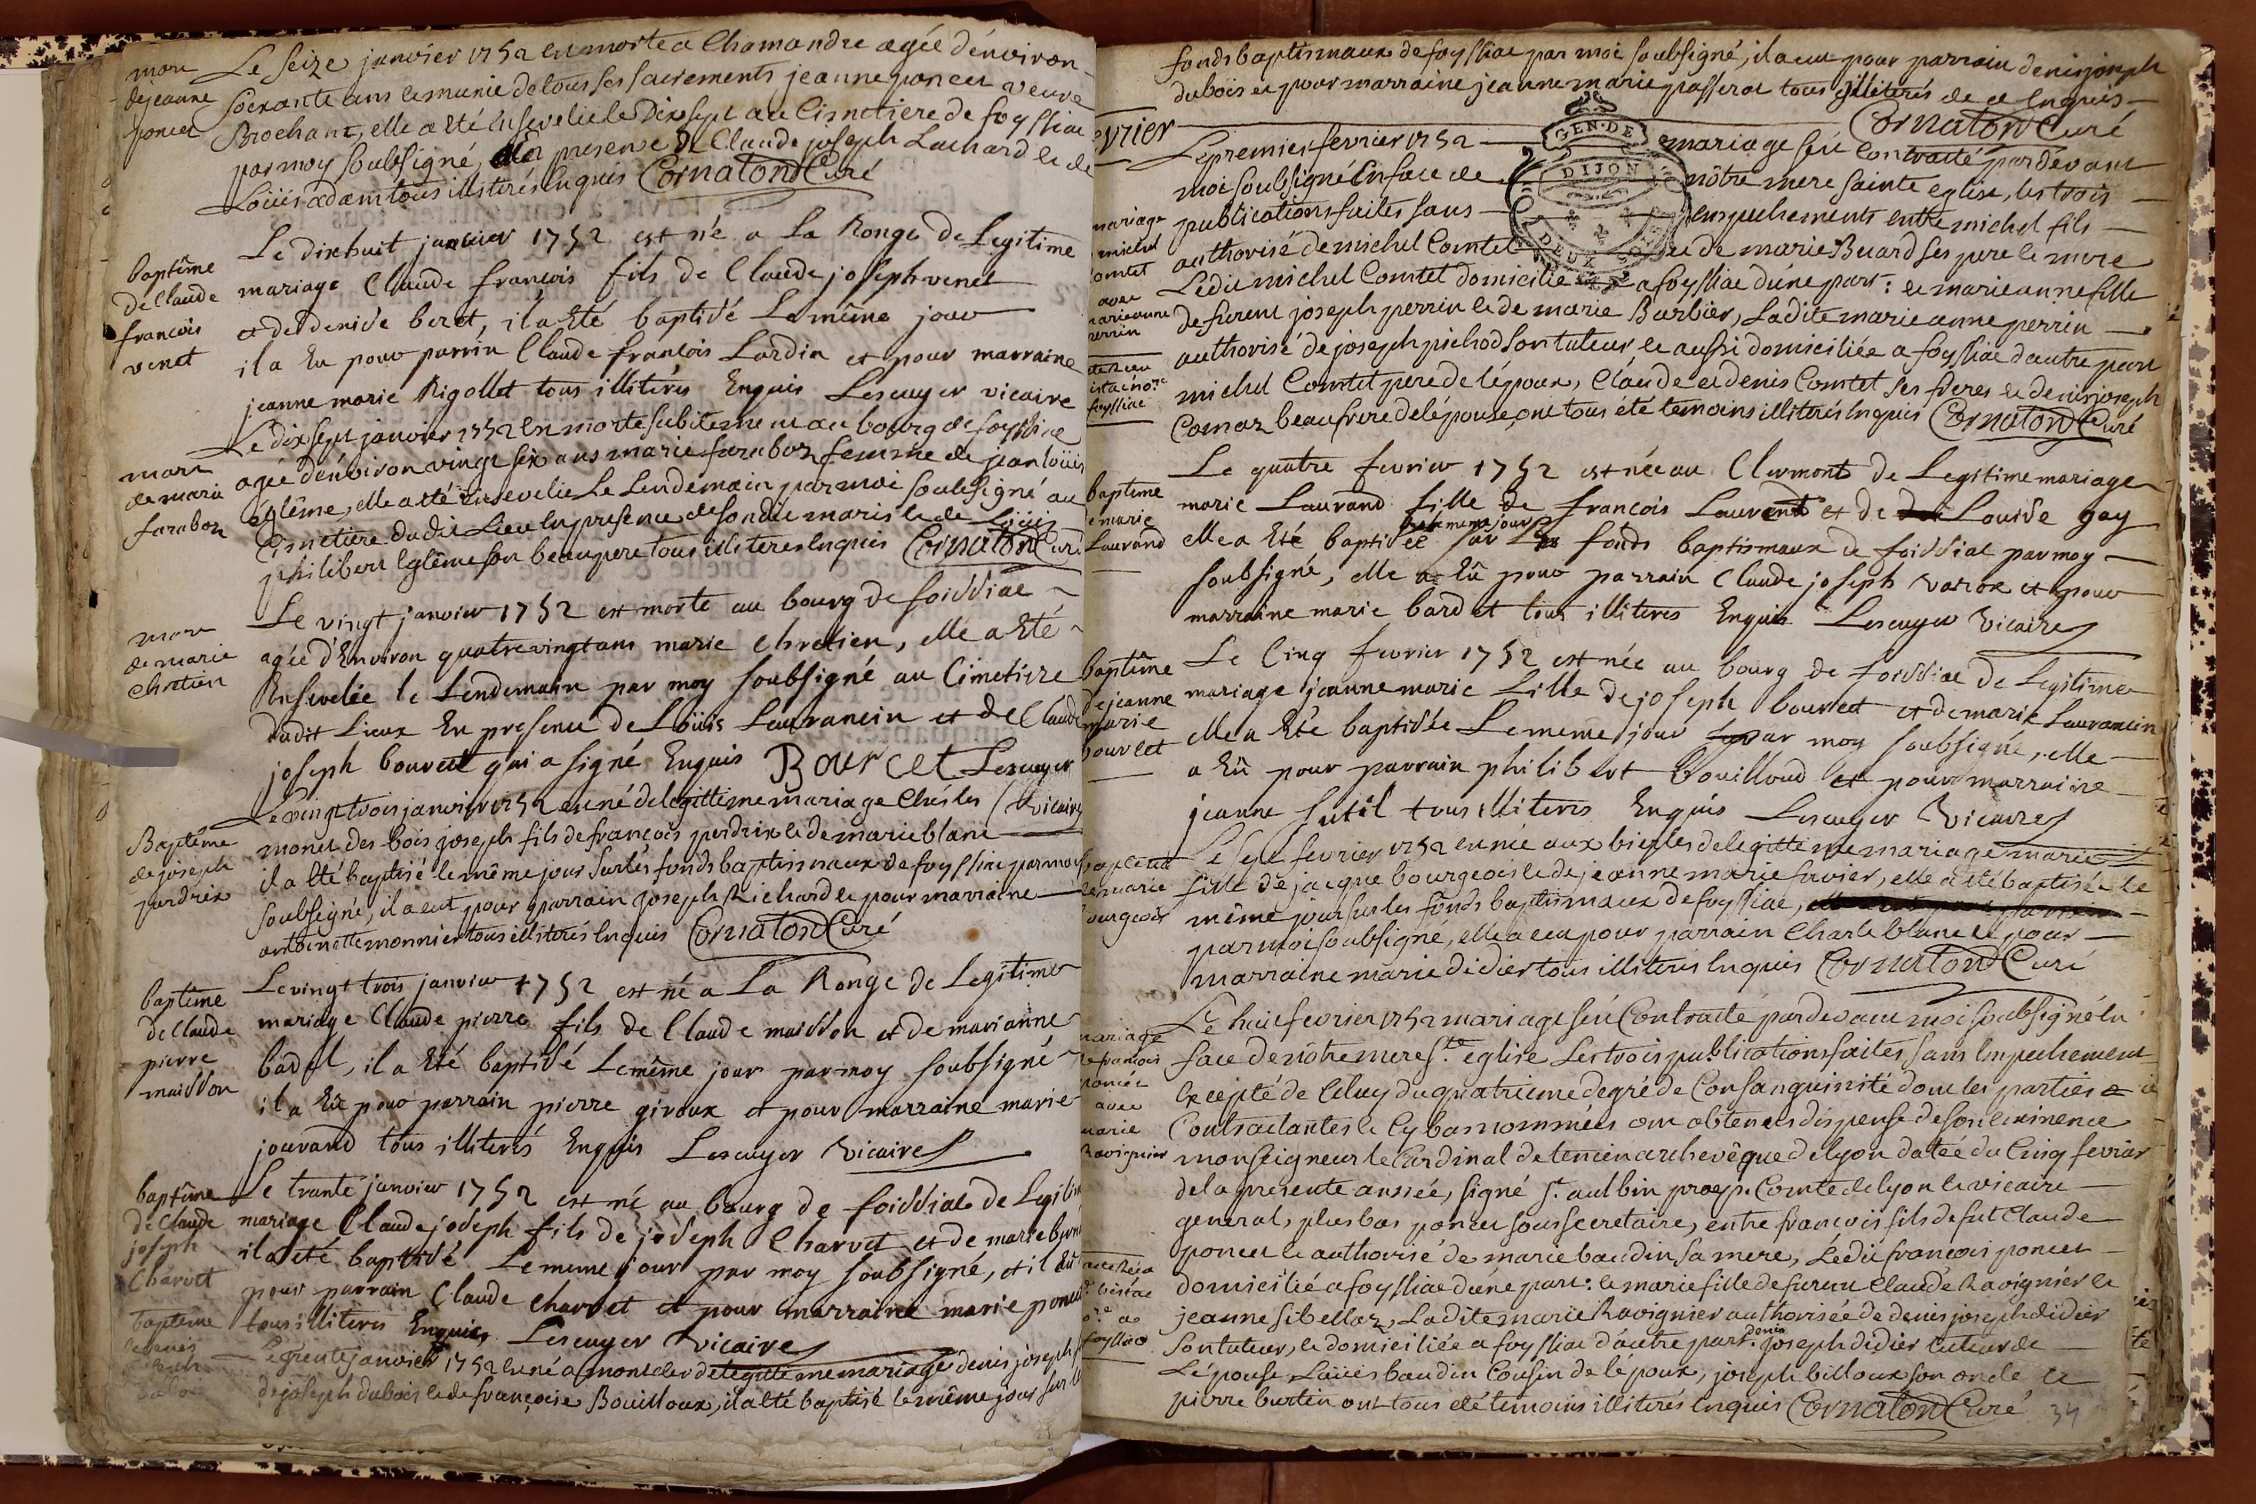 mort
de jeanne
poncet
Le seize janvier 1752 est morte a Chamandre agée d'énviron
soixante ans et munie de tous ses sacrements jeanne poncet veuve
Brochant, elle a eté ensevelie le Dix sept au Cimetiere de foyssiac
par moy soubsigné, en presence de Claude joseph Lachard et de
Loüis adam tous illiterés enquis Cornaton Curé
baptême
de Claude
françois
venet
Le dixhuit janvier 1752 est né a La Ronge de Legitime
mariage Claude françois fils de Claude joseph venet
et de denise beret, il a Eté baptisé Le même jour
il a Eu pour parrin Claude françois Lardin et pour marraine
jeanne marie Rigollet tous illiterés Enquis Lescuyer vicaire
mort
de marie
faraboz
Le dix sept janvier 1752 est morte subitement au bourg de foyssiac
agée d'énviron vingt six ans marie faraboz femme de jean loüis
eglême, elle a eté ensevelie Le Lendemain par moi soubsigné au
Cimetiere dudit Lieu en presence de son dit maris et de
philibert Eglême son beaupere tous illiterés enquis Cornaton Curé
mort
de marie
chretien
Le vingt janvier 1752 est morte au bourg de foissiac
agée d'Environ quatrevingt ans marie chretien, elle a Eté
Ensevelie le Lendemain par moy soubsigné au Cimetiere
dudit Lieux En presence de Loüis Laurancin et de Claude
joseph bourcet qui a signé Enquis Bourcet Lescuyer
vicaire
Baptême
de joseph
perdrix
Le vingt trois janvier 1752 est né de legittime mariage Chés les
monet des bois joseph fils de françois perdrix et de marie blanc
il a eté baptisé le même jour sur les fonds baptismaux de foyssiac par moy
soubsigné, il a eut pour parrain joseph Richard et pour marraine
antoinette monnier tous illiterés enquis Cornaton Curé
baptême
de Claude
pierre
maisson
Le vingt trois janvier 1752 est né a La Ronge de Legitime
mariage Claude pierre fils de Claude maisson et de marianne
badel, il a Eté baptisé Le même jour par moy soubsigné
il a Eû pour parrain pierre giroux et pour marraine marie
jourand tous illiterés Enquis Lescuyer vicaire
baptême
de Claude
joseph
Charvet
Le trante janvier 1752 est né au bourg de foissiac de Legitime
mariage Claude joseph fils de joseph Charvet et de marie
il a eté baptisé Le meme jour par moy soubsigné, et il Eû
pour parrain Claude charvet et pour marraine marie poncet
tous illiteres Enquis Lescuyer vicaire
baptême
de denis
Le trente janvier 1752 est né a montcler de legittime mariage denis joseph
de joseph dubois et de françoise Bouilloux, il a eté baptisé le même jour sur les
fonds baptismaux de foyssiac par moi soubsigné, il a eut pour parrain denis joseph
dubois et pour marraine jeanne marie passerat tous illiterés de ce enquis
Cornaton Curé
GEN. DE
DIJON
DEUX SOLS
mariage
michel
Comtet
avec
marieanne
perrin
foyssiac
Le premier fevrier 1752 mariage feu Contracté pardevant
moi soubsigné En face de nôtre mere sainte eglise, les trois
publications faites sans empechements entre michel fils
authorisé de michel Comtet et de marie Buard ses pere et mere
Ledit michel Comtet domicilié a foyssiac d'une part: et marieanne fille
de furent joseph perrin et de marie Barbier, Ladite marie anne perrin
authorisé de joseph pichod son tuteur et aussi domiciliée a foyssiac d'autre part
michel Comtet pere de l'époux, Claude et denis Comtet ses freres et denis joseph
Comaz beaufrere de l'épouse, ont tous été temoins illiterés enquis Cornaton Curé
baptême
de marie
Laurand
Le quatre fevrier 1752 est née au Clermont de Legitime mariage
marie Laurand fille de françois Laurent et de Louise gay
elle a Eté baptisée le meme jour sur Les fonds baptismaux de foissiac par moy
soubsigné, elle a Eû pour parrain Claude joseph varox et pour
marraine marie bardet tous illiteres Enquis Lescuyer Vicaire
baptême
de jeanne
marie
bourcet
Le Cinq fevrier 1752 est née au bourg de foissiac de Legitime
mariage jeanne marie fille de joseph bourcet et de marie Laurancin
elle a Eté baptisée Le meme jour par moy soubsigné, elle
a Eû pour parrain philibert bouilloud et pour marraine
jeanne sutil tous illiteres Enquis Lescuyer Vicaire
de marie
bourgeois
Le sept fevrier 1752 est née aux biesles de legittime mariage marie
fille de jacque bourgeois et de jeanne marie favier, elle a eté baptisée le
même jour sur les fonds baptismaux de foyssiac,
par moi soubsigné, elle a eu pour parrain Charle blanc et pour
marraine marie didier tous illiterés enquis Cornaton Curé
mariage
de françois
poncet
avec
marie
Ravignier
foyssiac
Le huit fevrier 1752 mariage feu Contracté pardevant moi soubsigné en
face de nôtre mere ste eglise Les trois publications faites sans Empechement
Excepté de Celuy du quatrieme degré de Consanguinité dont les parties
Contractantes et Cy bas nommées ont obtenues dispense de son eminence
monseigneur le Cardinal de tencin archevêque de lyon datée du Cinq fevrier
de la presente année, signé st. aulbin Comte de lyon et vicaire
general, plus bas poncet sous secretaire, entre françois fils de fut Claude
poncet et authorisé de marie baudin sa mere, Ledit françois poncet
domicilié a foyssiac d'une part: et marie fille de furent Claude Ravignier et
jeanne sibellaz, Ladite marie Ravignier authorisée de denis joseph didier
son tuteur, et domiciliée a foyssiac d'autre part. denis joseph didier tuteur de
L'épouse Loüis baudin Cousin de l'époux, joseph billoux son oncle et
pierre burtin ont tous eté temoins illiterés enquis Cornaton Curé
34